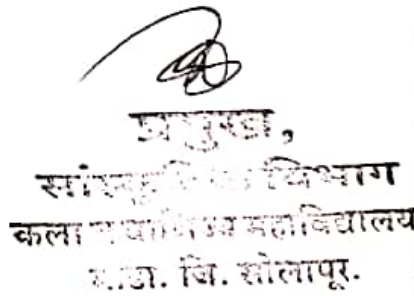 प्रमुख,
सांस्कृतिक विभाग
कला व वाणिज्य महाविद्यालय
जि. सोलापूर.